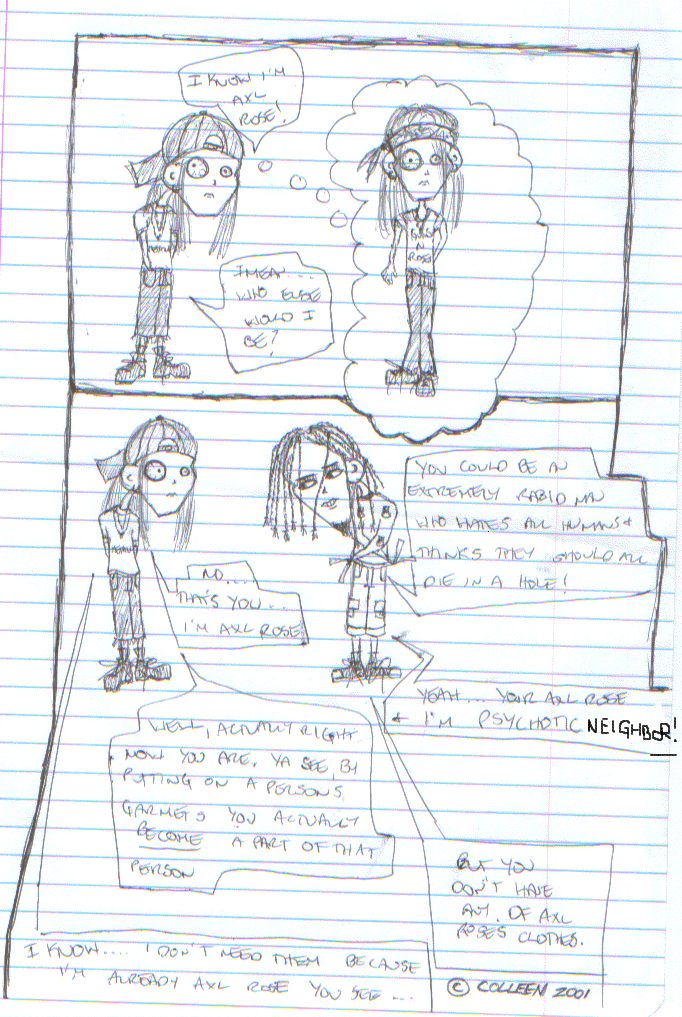 I KNOW I'M
AXL
ROSE!
I MEAN...
WHO ELSE
WOULD I
BE?
GUNS
N
ROSES
YOU COULD BE AN
EXTREMELY RABID MAN
WHO HATES ALL HUMANS &
THINKS THEY SHOULD ALL
DIE IN A HOLE!
NO....
THAT'S YOU...
I'M AXL ROSE
YEAH... YOUR AXL ROSE
& I'M PSYCHOTIC NEIGHBOR!
WELL, ACTUALLY RIGHT
NOW YOU ARE. YA SEE, BY
PUTTING ON A PERSONS
GARMETS YOU ACTUALLY
BECOME A PART OF THAT
PERSON
BUT YOU
DON'T HAVE
ANY OF AXL
ROSES CLOTHES.
I KNOW.... I DON'T NEED THEM BECAUSE
I'M ALREADY AXL ROSE YOU SEE ...
© COLLEEN 2001